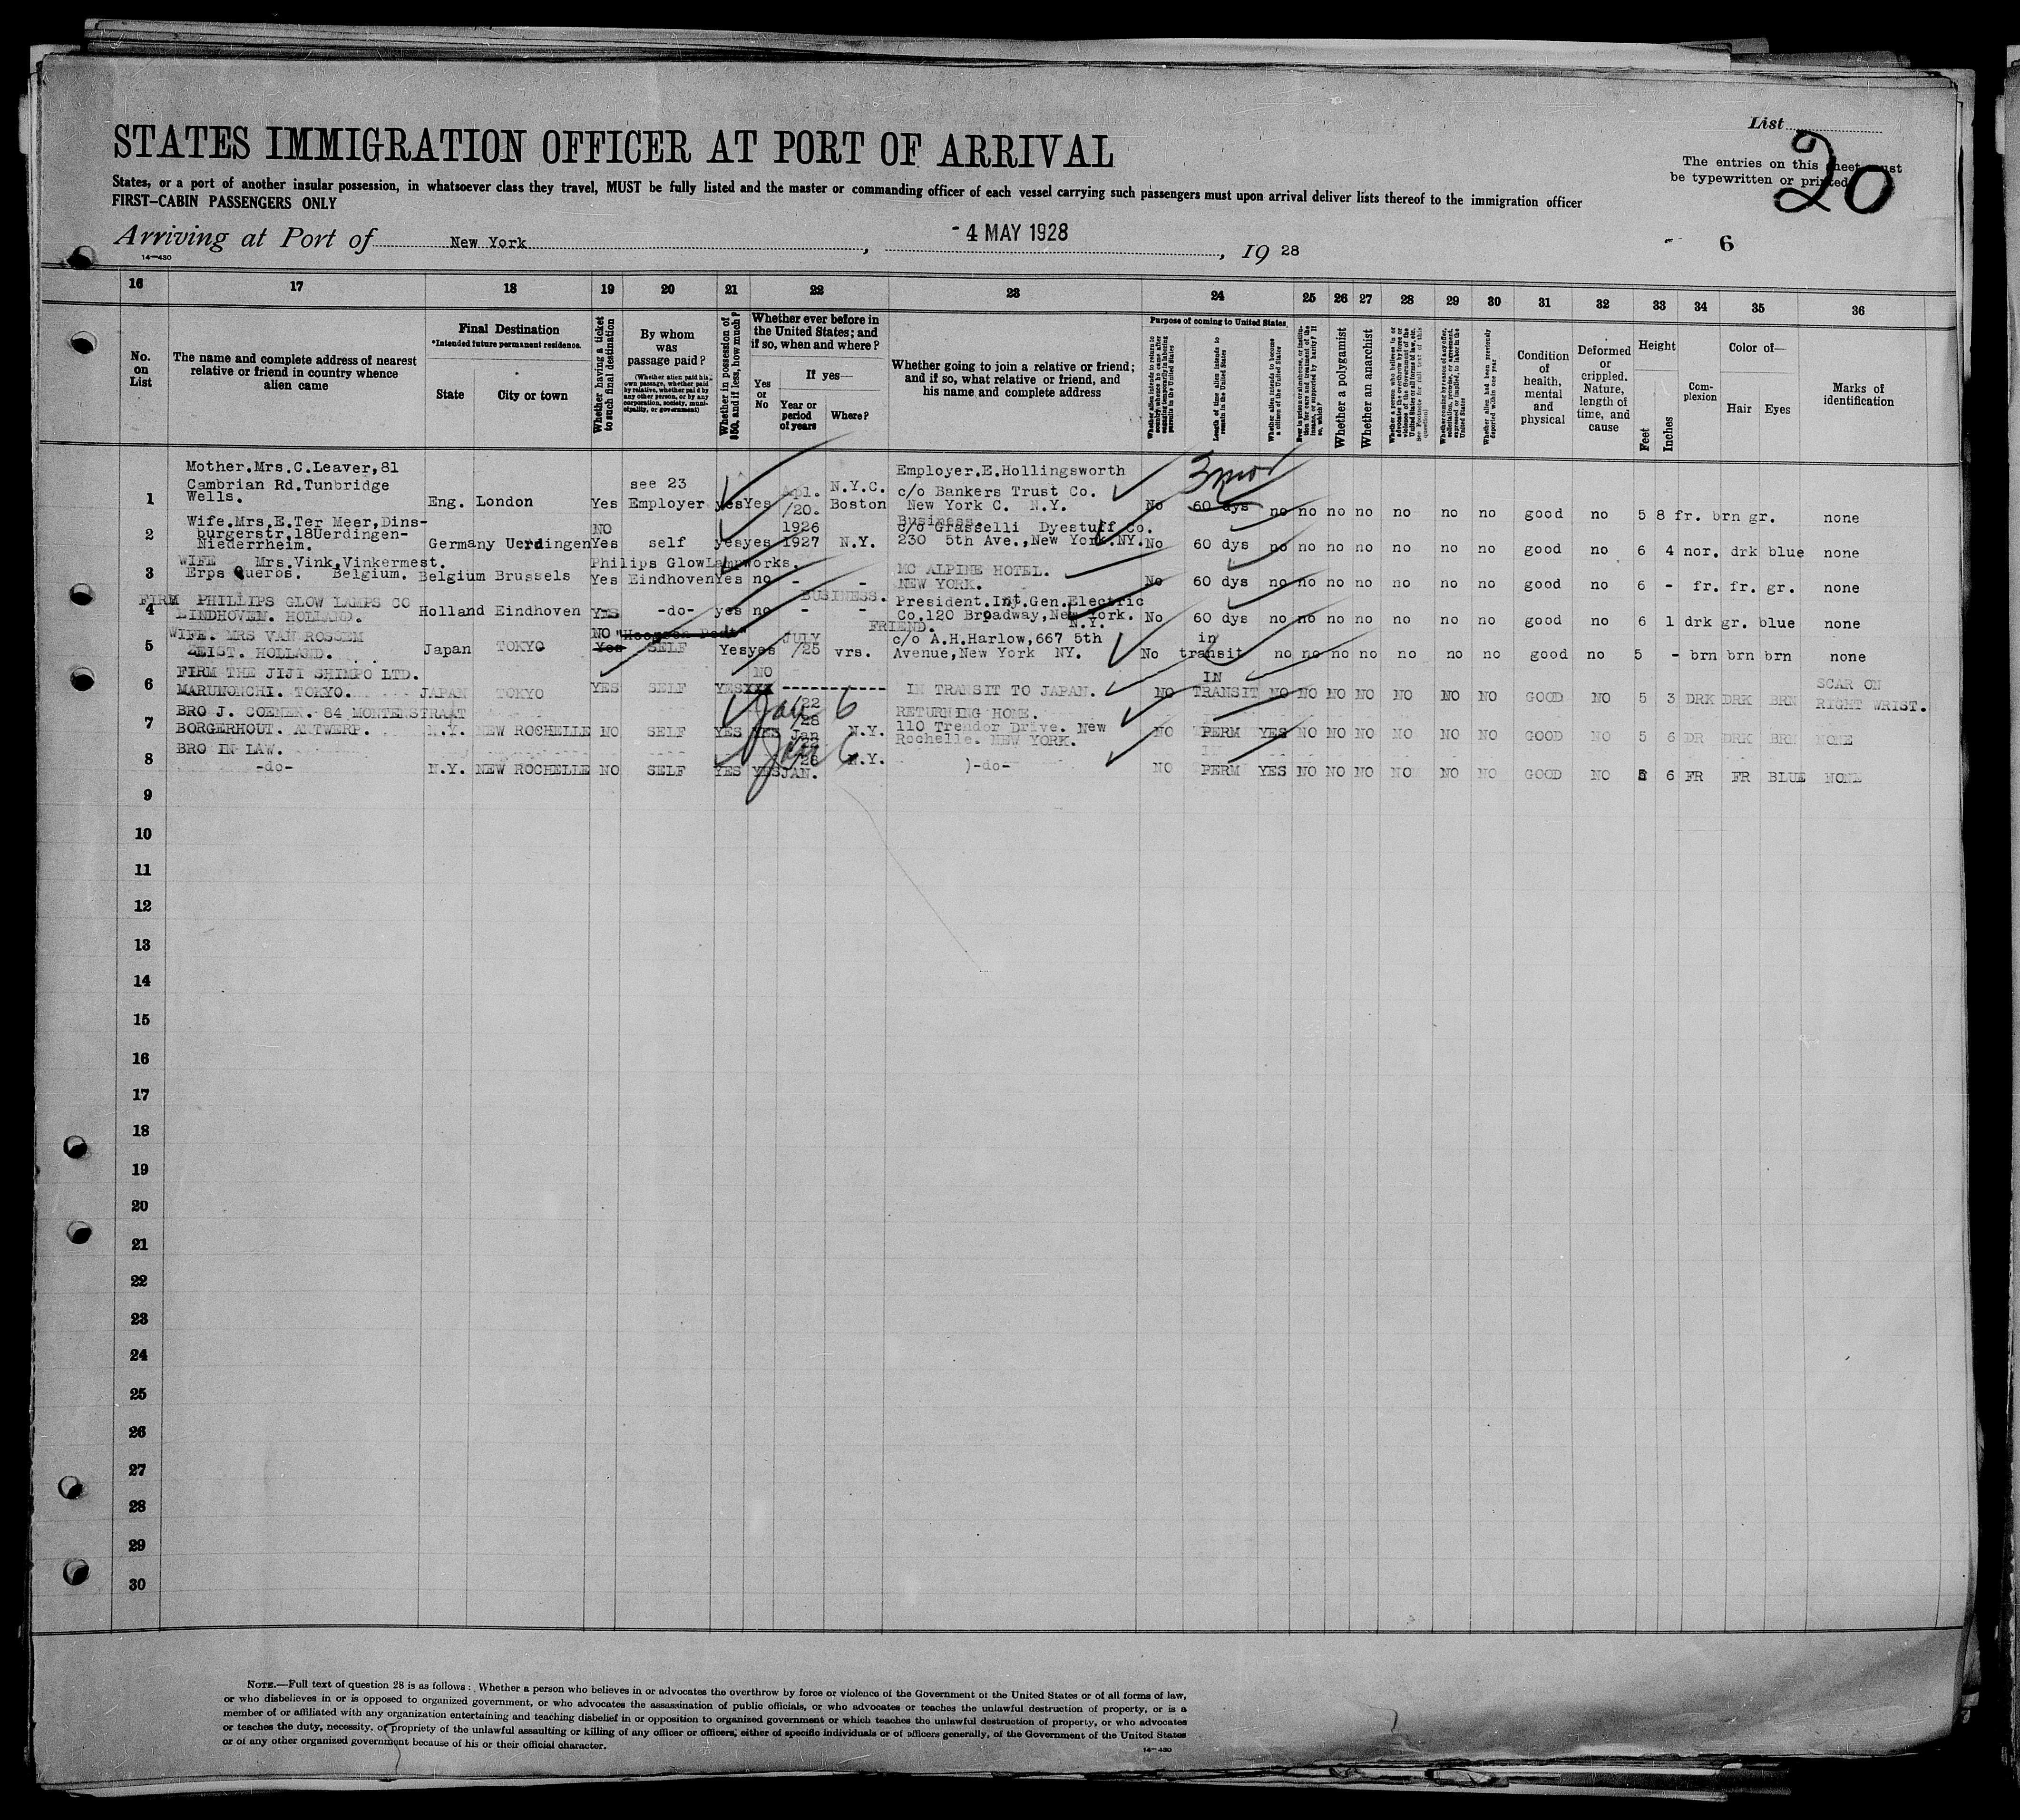 List
20
The entries on this sheet must
be typewritten or printed
STATES IMMIGRATION OFFICER AT PORT OF ARRIVAL
States, or a port of another insular possession, in whatsoever class they travel, MUST be fully listed and the master or commanding officer of each vessel carrying such passengers must upon arrival deliver lists thereof to the immigration officer
FIRST-CABIN PASSENGERS ONLY
Arriving at Port of New York, - 4 MAY 1928, 19 28
6
14-430
16 17 18 19 20 21 22 23 24 25 26 27 28 29 30 31 32 33 34 35 36
No. on List
The name and complete address of nearest relative or friend in country whence alien came
Final Destination
*Intended future permanent residence.
State
City or town
Whether having a ticket to such final destination
By whom was passage paid?
(Whether alien paid his own passage, whether paid by relative, whether paid by any other person, or by any corporation, society, municipality, or government)
Whether in possession of $50, and if less, how much?
Whether ever before in the United States; and if so, when and where?
Yes or No
If yes—
Year or period of years
Where?
Whether going to join a relative or friend; and if so, what relative or friend, and his name and complete address
Purpose of coming to United States
Length of time alien intends to remain in the United States
Whether alien intends to become a citizen of the United States
Whether a polygamist
Whether an anarchist
Whether alien has been previously deported within one year
Condition of health, mental and physical
Deformed or crippled. Nature, length of time, and cause
Height
Feet
Inches
Complexion
Color of—
Hair
Eyes
Marks of identification
1 Mother.Mrs.C.Leaver,81
Cambrian Rd.Tunbridge
Wells. Eng. London Yes see 23 Employer yes Yes Apl. /20. N.Y.C. Boston
Employer.E.Hollingsworth
c/o Bankers Trust Co.
New York C. N.Y. No 3 mos 60 dys no no no no no no no good no 5 8 fr. brn gr. none
2 Wife.Mrs.E.Ter Meer,Dins-
burgerstr,18Uerdingen-
Niederrheim. Germany Uerdingen NO Yes self yes yes 1926 1927 N.Y.
Business.
c/o Grasselli Dyestuff Co.
230 5th Ave.,New York.NY. No 60 dys no no no no no no no good no 6 4 nor. drk blue none
3 WIFE Mrs.Vink,Vinkermest.
Erps Queros. Belgium. Belgium Brussels Yes Philips GlowLampworks. Eindhoven Yes no - -
MC ALPINE HOTEL.
NEW YORK. No 60 dys no no no no no no no good no 6 - fr. fr. gr. none
4 FIRM PHILLIPS GLOW LAMPS CO
EINDHOVEN. HOLLAND. Holland Eindhoven YES -do- yes no - -
BUSINESS.
President.Int.Gen.Electric
Co.120 Broadway,New York.
N.Y. No 60 dys no no no no no no no good no 6 1 drk gr. blue none
5 WIFE. MRS VAN ROSSEM
ZEIST. HOLLAND. Japan TOKYO NO Yes SELF Yes yes JULY /25 vrs.
FRIEND.
c/o A.H.Harlow,667 5th
Avenue,New York NY. No in transit no no no no no no no good no 5 - brn brn brn none
6 FIRM THE JIJI SHIMPO LTD.
MARUNONCHI. TOKYO. JAPAN TOKYO YES SELF YES NO XXX ------------
IN TRANSIT TO JAPAN. NO IN TRANSIT NO NO NO NO NO NO NO GOOD NO 5 3 DRK DRK BRN SCAR ON
RIGHT WRIST.
7 BRO J. COENEN. 84 MONTENSTRAAT
BORGERHOUT. ANTWERP. N.Y. NEW ROCHELLE NO SELF YES YES /22 /28 Jan N.Y.
Jan 6
RETURNING HOME.
110 Trendor Drive. New
Rochelle. NEW YORK. NO PERM YES NO NO NO NO NO NO GOOD NO 5 6 DR DRK BRN NONE
8 BRO IN LAW.
-do- N.Y. NEW ROCHELLE NO SELF YES YES JAN. N.Y.
Jan 6
)-do- NO PERM YES NO NO NO NO NO NO GOOD NO 5 6 FR FR BLUE NONE
9
10
11
12
13
14
15
16
17
18
19
20
21
22
23
24
25
26
27
28
29
30
NOTE.—Full text of question 28 is as follows: Whether a person who believes in or advocates the overthrow by force or violence of the Government of the United States or of all forms of law,
or who disbelieves in or is opposed to organized government, or who advocates the assassination of public officials, or who advocates or teaches the unlawful destruction of property, or is a
member of or affiliated with any organization entertaining and teaching disbelief in or opposition to organized government or which teaches the unlawful destruction of property, or who advocates
or teaches the duty, necessity, or propriety of the unlawful assaulting or killing of any officer or officers, either of specific individuals or of officers generally, of the Government of the United States
or of any other organized government because of his or their official character.
14-430